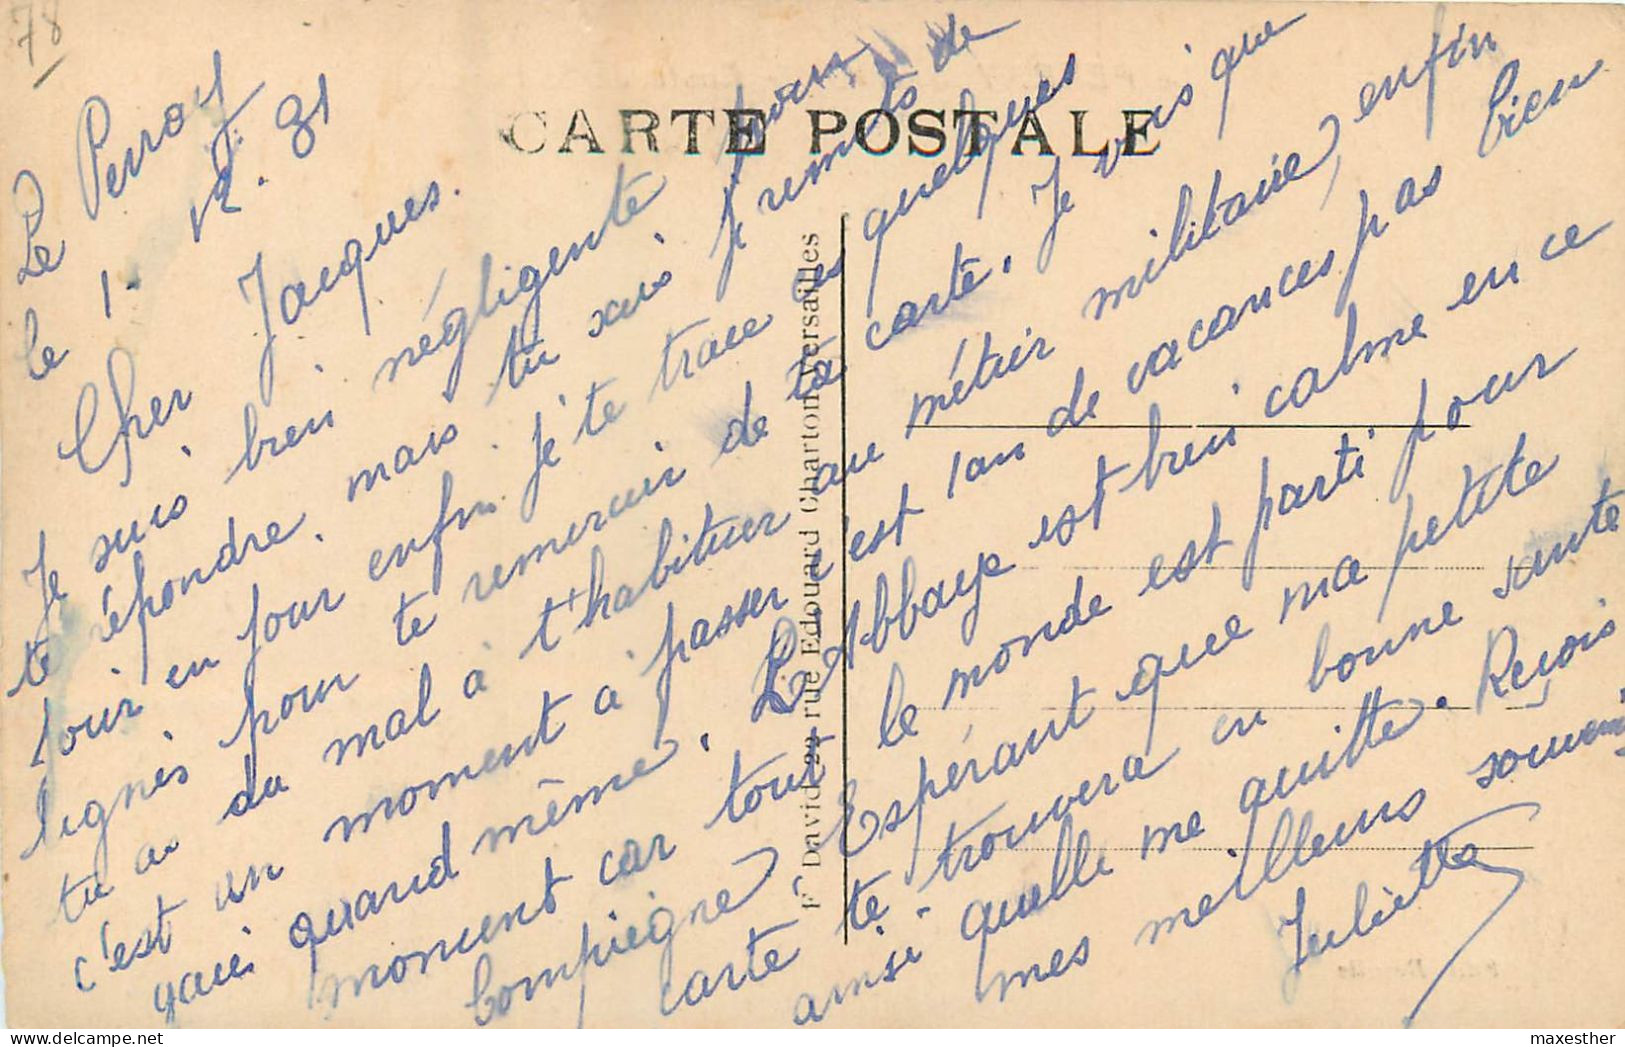 78
CARTE POSTALE
Le Perray
le 1. 12. 31
Cher Jacques.
Je suis bien négligente pour
te répondre, mais tu sais j'remets de
jour en jour enfin je te trace ces quelques
lignes pour te remercier de ta carte. Je vois que
tu as du mal à t'habituer au métier militaire, enfin
c'est un moment à passer c'est 1 an de vacances pas bien
gaies quand même. L'Abbaye est bien calme en ce
moment car tout le monde est parti pour
Compiègne. Espérant que ma petite
carte te trouvera en bonne santé
ainsi quelle me quitte. Reçois
mes meilleurs souvenirs
Juliette
Fᵈ David 22 rue Edouard Charton Versailles
maxesther